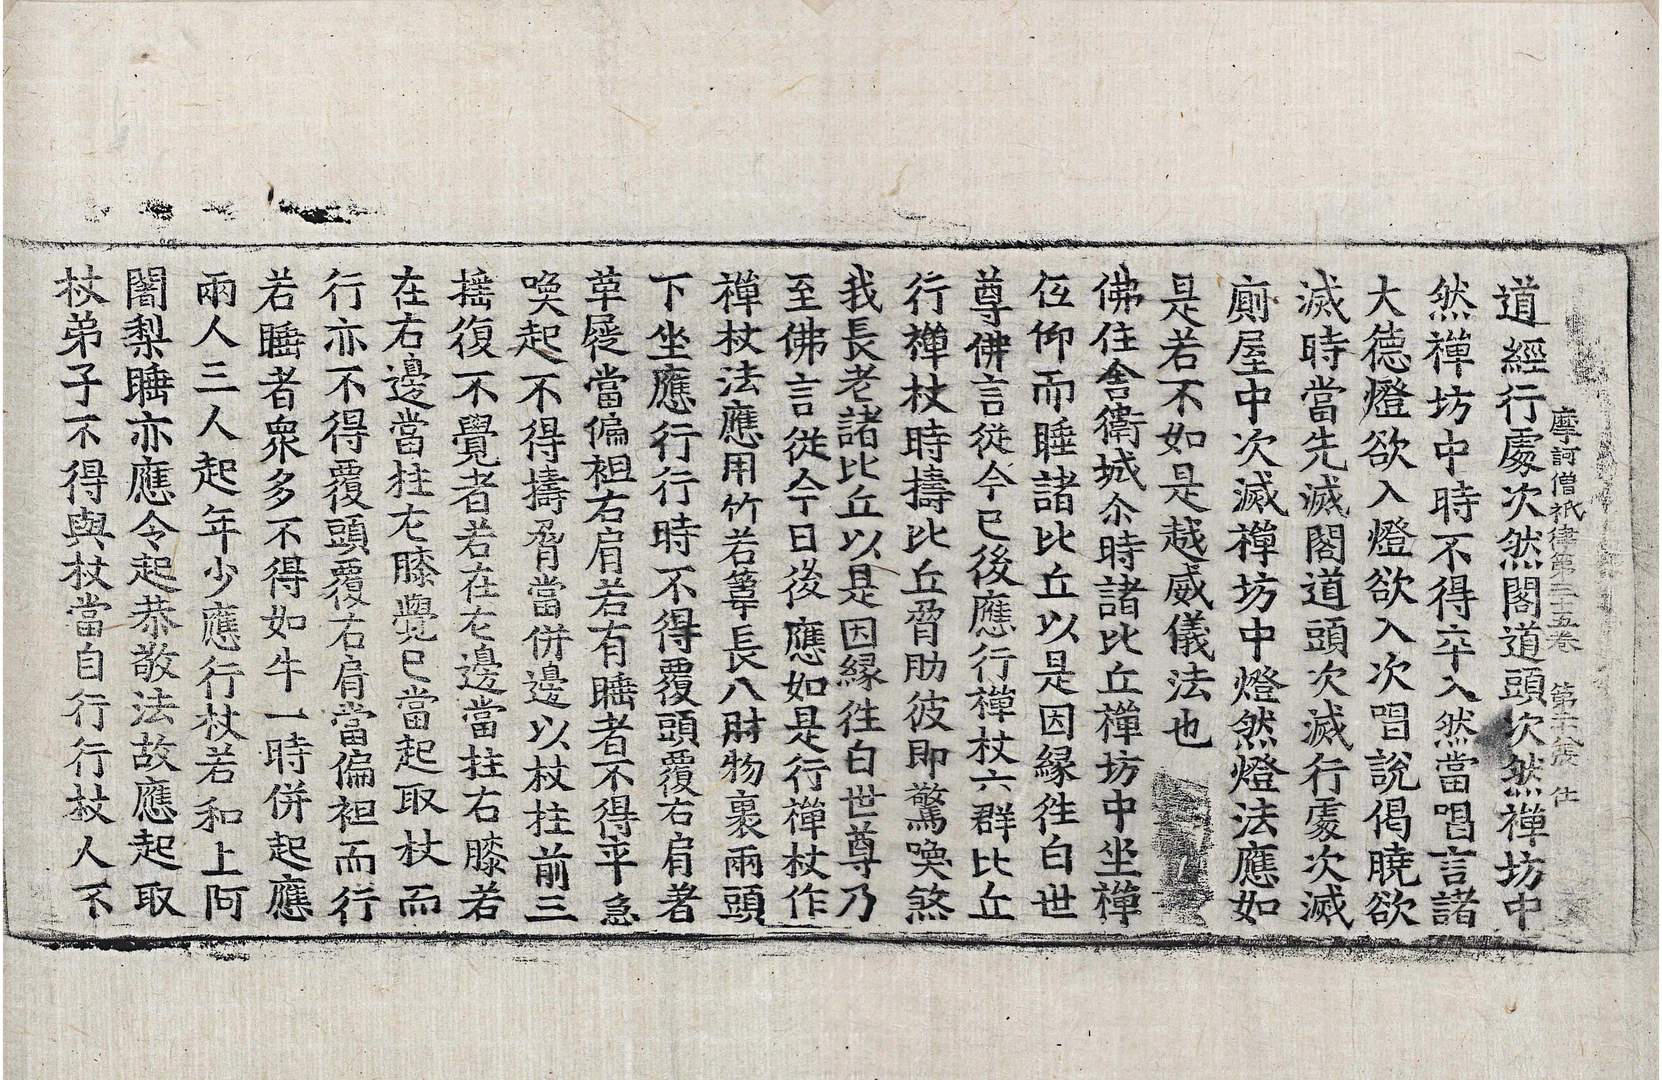 摩訶僧祇律第三十五卷 第十八張 仕
道經行處次然閣道頭次然禪坊中
然禪坊中時不得卒入然當唱言諸
大德燈欲入燈欲入次唱說偈曉欲
滅時當先滅閣道頭次滅行處次滅
廁屋中次滅禪坊中燈然燈法應如
是若不如是越威儀法也
佛住舍衛城尒時諸比丘禪坊中坐禪
低仰而睡諸比丘以是因緣徃白世
尊佛言從今已後應行禪杖六群比丘
行禪杖時擣比丘脅肋彼即驚喚煞
我長老諸比丘以是因緣徃白世尊乃
至佛言從今日後應如是行禪杖作
禪杖法應用竹若葦長八肘物裹兩頭
下坐應行行時不得覆頭覆右肩著
革屣當偏袒右肩若有睡者不得卒急
喚起不得擣脅當併邊以杖柱前三
搖復不覺者若在左邊當柱右膝若
在右邊當柱左膝覺已當起取杖而
行亦不得覆頭覆右肩當偏袒而行
若睡者衆多不得如牛一時併起應
兩人三人起年少應行杖若和上阿
闍梨睡亦應令起恭敬法故應起取
杖弟子不得與杖當自行行杖人不